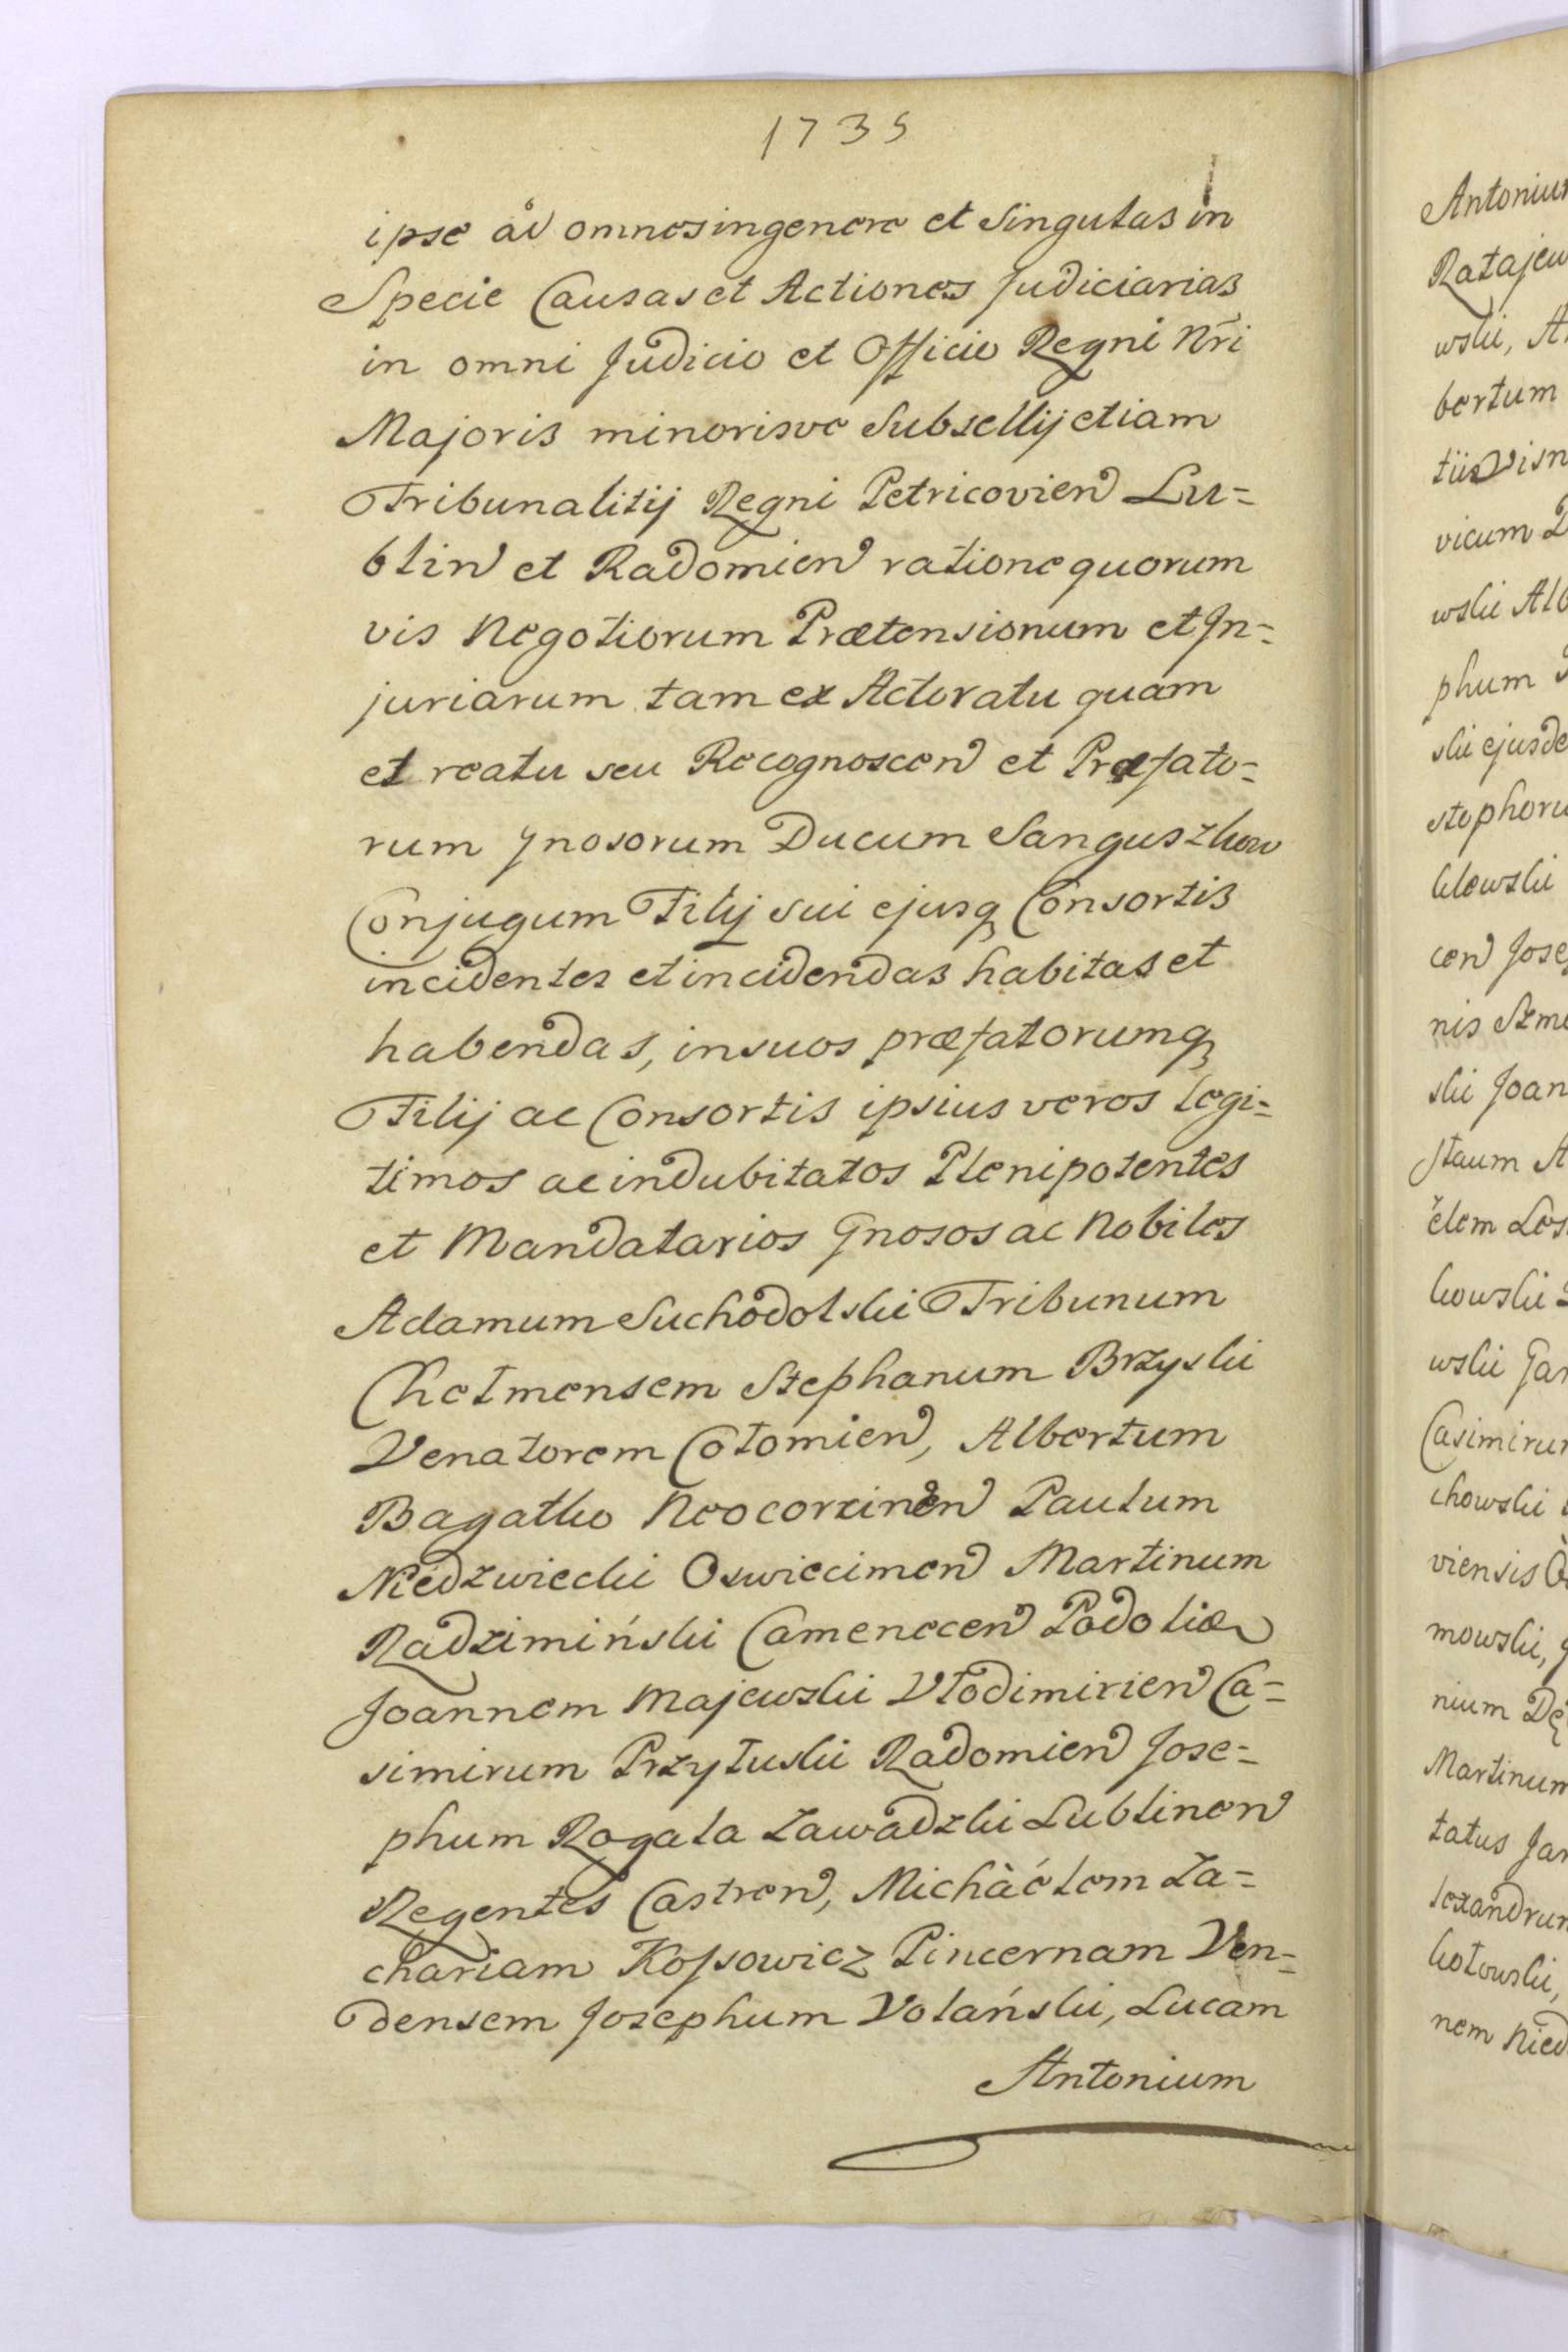 1735
ipse ad omnes in genere et Singulas in
Specie Causas et Actiones Judiciarias
in omni Judicio et Officio Regni Nri
Majoris minorisve Subsellij etiam
Tribunalitij Regni Petricovien Lu=
blin et Radomien ratione quorum
vis Negotiorum Prætensionum et In=
juriarum tam ex Actoratu quam
et reatu seu Recognoscen et Præfato=
rum Gnosorum Ducum Sanguszkow
Conjugum Filij sui ejusq Consortis
incidentes et incidendas habitas et
habendas, in suos præfatorumq
Filij ac Consortis ipsius veros legi=
timos ac indubitatos Plenipotentes
et Mandatarios Gnosos ac Nobiles
Adamum Suchodolski Tribunum
Chełmensem Stephanum Brzyski
Venatorem Cołomien, Albertum
Bagatko Neocorxinen Paulum
Niedzwiecki Oswiecimen Martinum
Radzimiński Camenecen Podoliæ
Joannem Majewski Vłodimirien Ca=
simirum Przyłuski Radomien Jose=
phum Rogala Zawadzki Lublinen
Regentes Castren, Michàélem Za=
chariam Kossowicz Pincernam Ven=
densem Josephum Volański, Lucam
Antonium
Antonium
Ratajew
wski, A
bertum
vicum
wski Alb
phum
ski ejusde
stophoru
cen Jose
ski Joan
wski Jan
Casimirum
chowski
viensis
mowski,
nium Dę
Martinum
tatus Jan
lexandrum
nem Nied